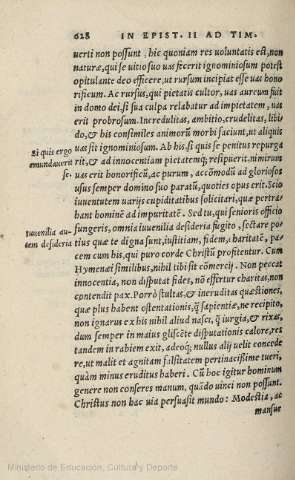 628 IN EPIST. II AD TIM.
uerti non possunt. hic quoniam res uoluntatis est, non
naturæ, qui se uitio suo uas fecerit ignominiosum potest
opitulante deo efficere, ut rursum incipiat esse uas hono
rificum. Ac rursus, qui pietatis cultor, uas aureum fuit
in domo dei, si sua culpa relabatur ad impietatem, uas
erit probrosum. Incredulitas, ambitio, crudelitas, libi
do, & his consimiles animorū morbi faciunt, ut aliquis
Si quis ergo
uas sit ignominiosum. Ab his si quis se penitus repurga
emundauerit
rit, & ad innocentiam pietatemq; resipuerit, nimirum
se.
uas erit honorificū, ac purum, accōmodū ad gloriosos
usus semper domino suo paratū, quoties opus erit. Scio
iuuentutem uarijs cupiditatibus solicitari, quæ pertra-
hant hominē ad impuritatē. Sed tu, qui senioris officio
Iuuenilia au-
fungeris, omnia iuuenilia desideria fugito, sectare po-
tem desideria
tius quæ te digna sunt, iustitiam, fidem, charitatē, pa-
cem cum his, qui puro corde Christū profitentur. Cum
Hymenæi similibus, nihil tibi sit cōmercij. Non peccat
innocentia, non disputat fides, nō effertur charitas, non
contendit pax. Porrò stultas, & ineruditas quæstiones,
quæ plus habent ostentationis, q̃ sapientiæ, ne recipito,
non ignarus ex his nihil aliud nasci, q̃ iurgia, & rixas,
dum semper in maius gliscēte disputationis calore, res
tandem in rabiem exit, adeoq; nullus alij uelit concede
re, ut malit et agnitam falsitatem pertinacissime tueri,
quàm minus eruditus haberi. Cū hoc igitur hominum
genere non conseres manum, quādo uinci non possunt.
Christus non hac uia persuasit mundo: Modestia, ac
mansue
Ministerio de Educación, Cultura y Deporte